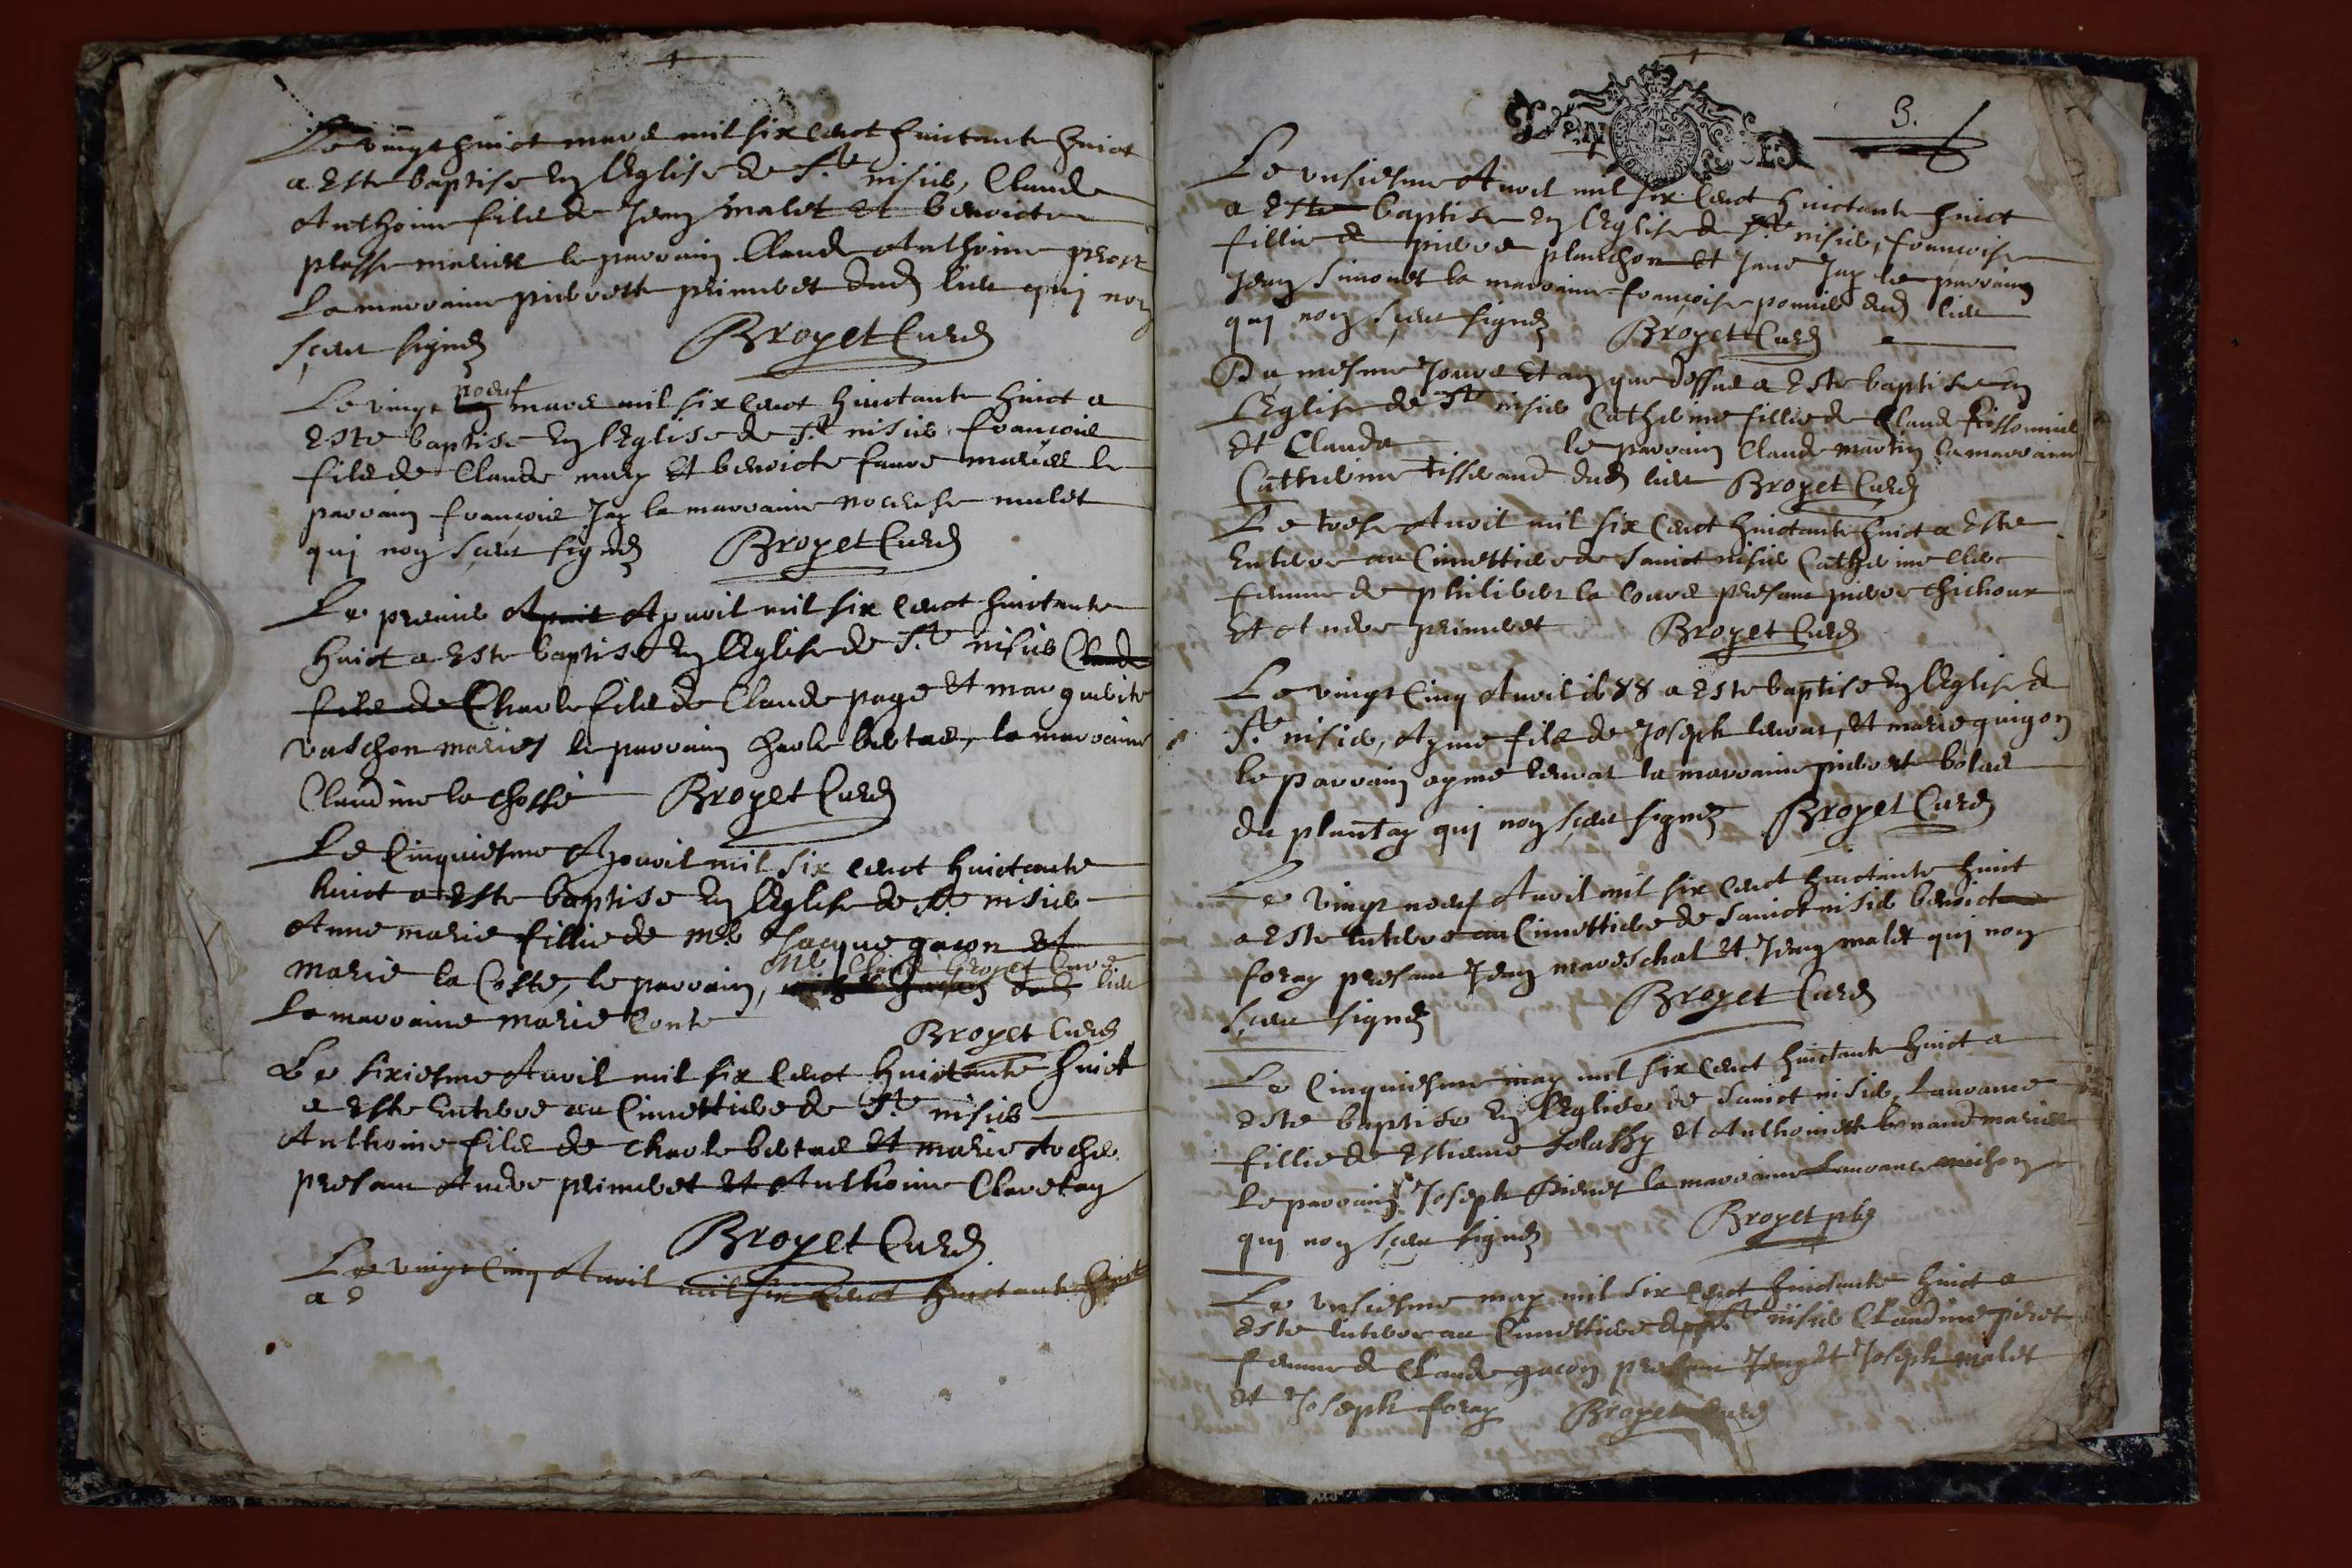 Le vingt huict mars mil six cent huictante huict
a este baptise en l'Eglise de St nisier, Claude
Anthoine fils de Jean malet et benoicte
plasse maries le parrain Claude Anthoine
La marraine pierrette primebet dud lieu qui non
sceu signer Broyet Curé
Le vingt noeuf mars mil six cent huictante huict a
Este baptise en l'Eglise de St nisier françois
fils de Claude mury et benoicte favre maries le
parrain françois Jay la marraine mulet
qui non sceu signer Broyet Curé
Le premier Apvril mil six cent huictante
huict a Este baptise en l'Eglise de St nisier Claude
fils de Charle fils de Claude page et marguerite
vaschon maries le parrain charle bertas, la marraine
Claudine la chosse Broyet Curé
Le Cinquiesme Apvril mil six cent huictante
huict a este baptise en l'Eglise de St nisier
Anne marie fillie de mr Jacque gacon et
marie la Coste, le parrain, Mr Claude broyet Curé lieu
La marraine marie Conte
Broyet Curé
Le sixiesme Avril mil six cent huictante huict
a este Enterre au Cimettiere de St nisier
Anthoine fils de charle bertas et marie Rocher
presant Andre primebet et Anthoine Claretay
Broyet Curé
Le vingt Cinq Avril mil six cent huictante huict
a e
3.
Le unsiesme Avril mil six cent huictante huict
a Este baptise en l'Eglise de St nisier, françoise
fillie de pierre planchon et Jane Jay le parrain
Jean Simonet la marraine françoise ponnier dud lieu
qui non sceu signer Broyet Curé
Du mesme Jours et an que dessus a Este baptise en
L'Eglise de St nisier Catherine fillie de Claude
et Clauda le parrain Claude martin la marraine
Catherine Tisserand dud lieu Broyet Curé
Le trese Avril mil six cent huictante huict a Este
Enterre au Cimettiere de Sainct nisier Catherine
femme de philibert la Cours presant pierre chichoux
et Andre primebet Broyet Curé
Le vingt Cinq Avril 1688 a Este baptise en l'Eglise de
St nisier, Ayme fils de Joseph levrat, et marie guigon
le parrain ayme levrat la marraine pierrette bolas
du plantay qui non sceu signer Broyet Curé
Le vingt noeuf Avril mil six cent huictante huict
a Este Enterre au Cimettiere de Sainct nisier benoicte
foray presant Jean mareschal et Jean malet qui non
sceu signer Broyet Curé
Le Cinquiesme may mil six cent huictante huict a
este baptise en l'Eglise de Sainct nisier, Laurance
fillie de Estienne et Anthoinette bernand maries
Le parrain Joseph la marraine Laurance michon
qui non sceu signer Broyet ptre
Le unsiesme may mil six cent huictante huict a
Este Enterre au Cimettiere de St nisier Claudine
femme de Claude gacon presant Jean et Joseph malet
et Joseph foray Broyet Curé